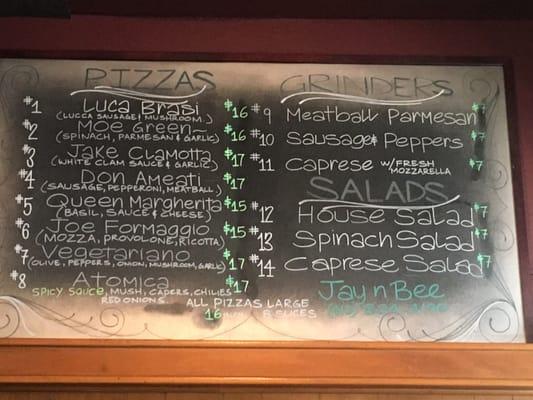 PIZZAS
#1 Luca Brasi $16
(LUCCA SAUSAGE, MUSHROOM)
#2 Moe Green $16
(SPINACH, PARMESAN & GARLIC)
#3 Jake ClaMotta $17
(WHITE CLAM SAUCE & GARLIC)
#4 Don Ameati $17
(SAUSAGE, PEPPERONI, MEATBALL)
#5 Queen Margherita $15
(BASIL, SAUCE & CHEESE)
#6 Joe Formaggio $15
(MOZZA, PROVOLONE, RICOTTA)
#7 Vegetariano $17
(OLIVE, PEPPERS, ONION, MUSHROOM, GARLIC)
#8 Atomica $17
SPICY SAUCE, MUSH, CAPERS, CHILIES
RED ONIONS
ALL PIZZAS LARGE
16 8 SLICES
GRINDERS
#9 Meatball Parmesan $7
#10 Sausage & Peppers $7
#11 Caprese W/FRESH MOZZARELLA $7
SALADS
#12 House Salad $7
#13 Spinach Salad $7
#14 Caprese Salad $7
Jay n Bee